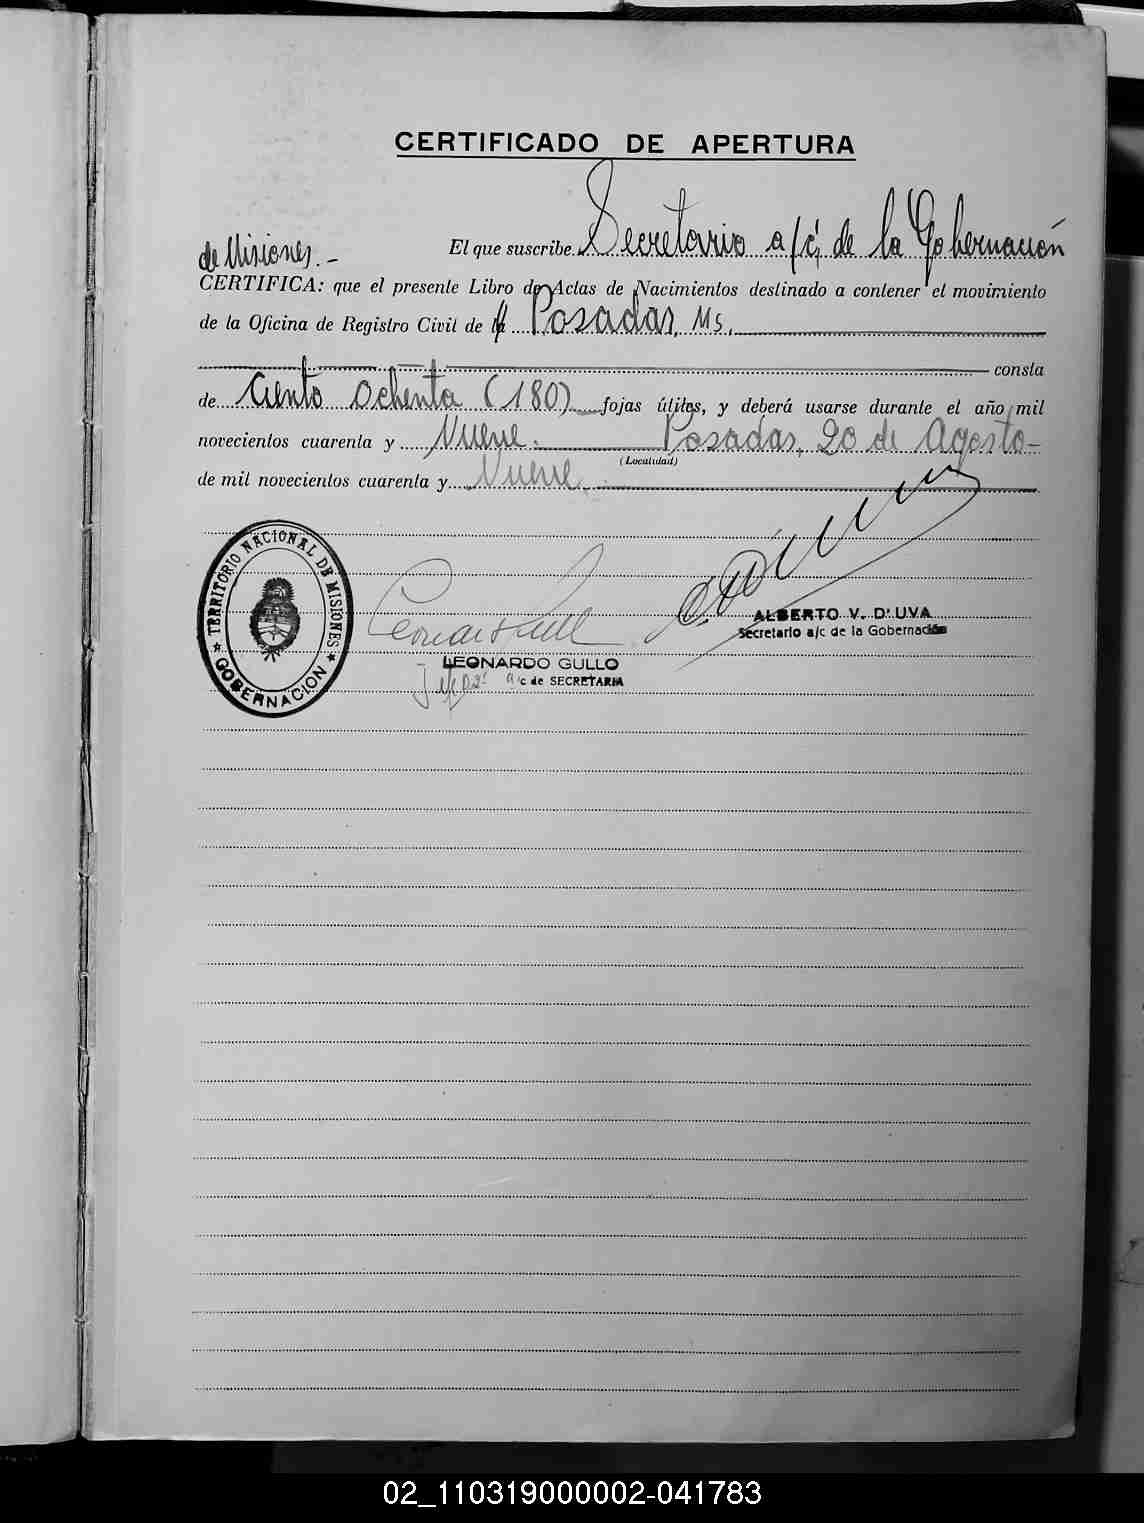 CERTIFICADO DE APERTURA
El que suscribe Secretario a/c, de la Gobernación
de Misiones.-
CERTIFICA: que el presente Libro de Actas de Nacimientos destinado a contener el movimiento
de la Oficina de Registro Civil de Posadas, Ms,
consta
de Ciento Ochenta (180) fojas útiles, y deberá usarse durante el año mil
novecientos cuarenta y Nueve. Posadas, 20 de Agosto
(Localidad)
de mil novecientos cuarenta y Nueve.
TERRITORIO NACIONAL DE MISIONES
GOBERNACION
ALBERTO V. D'UVA
Secretario a/c de la Gobernación
LEONARDO GULLO
a/c de SECRETARIA
02_110319000002-041783